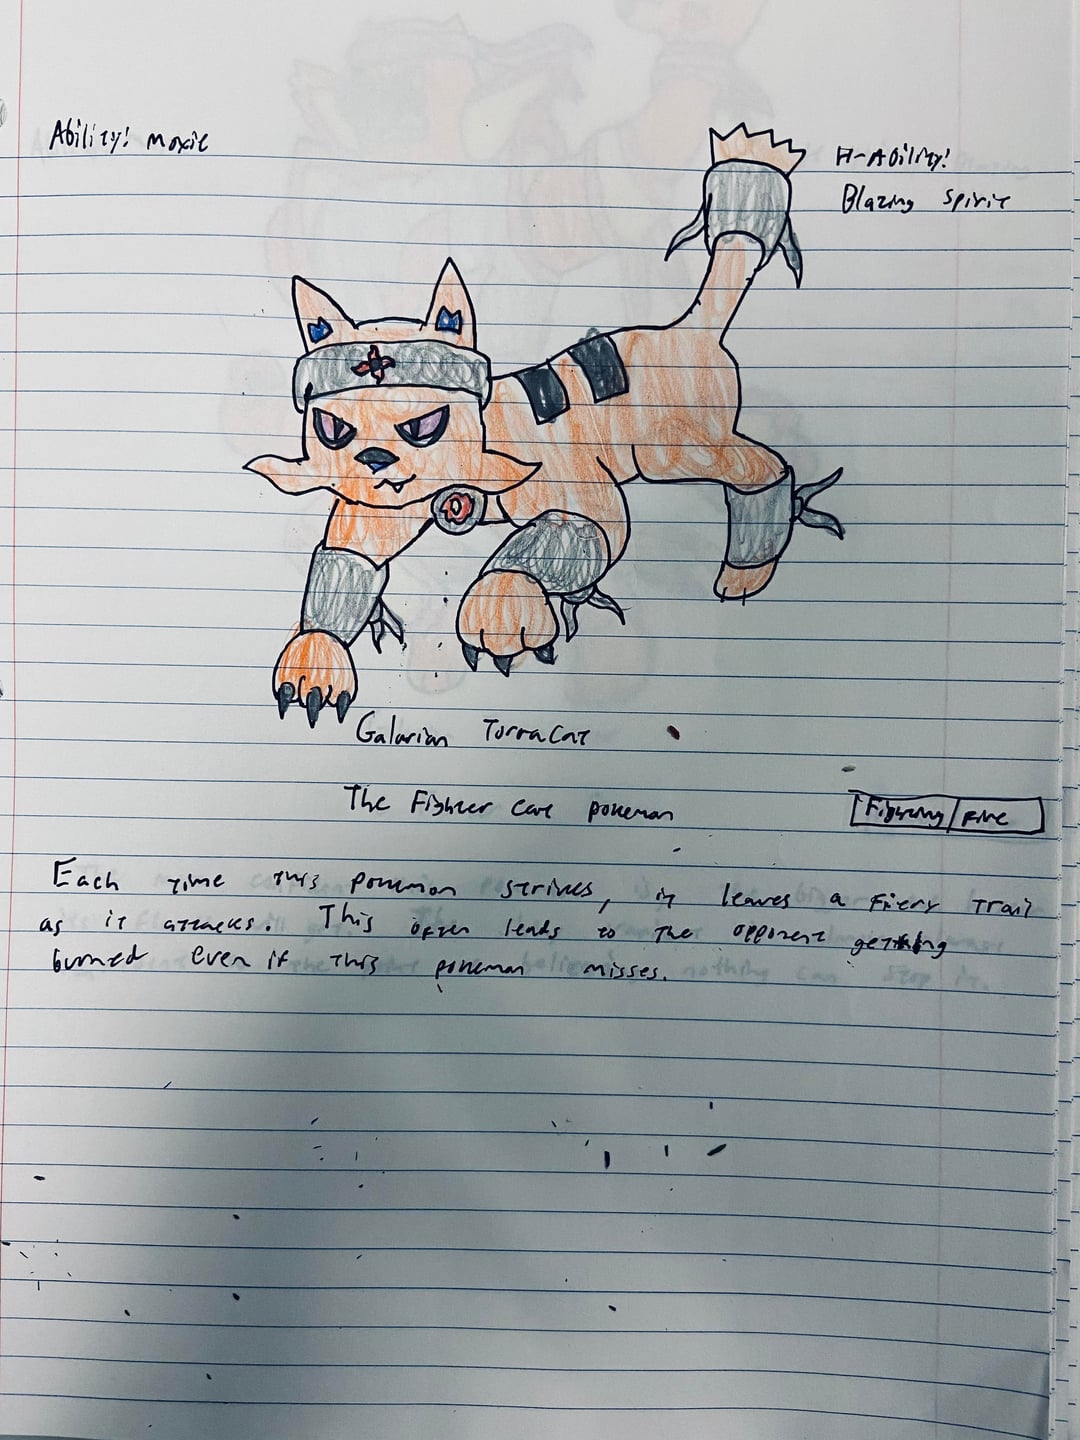 Ability! Moxie
H-Ability!
Blazing Spirit
Galarian Torracat
The Fighter Cat Pokemon
Fighting Fire
Each time this pokemon strikes, it leaves a fiery trail
as it attacks. This often leads to the opponent getting
burned even if this pokemon misses.